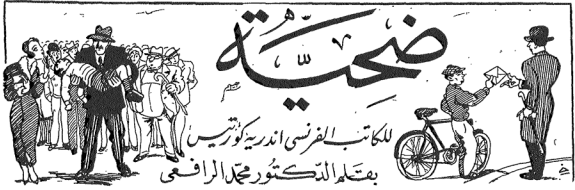 ضحيّة
للكاتب الفرنسى اندرية كوثريس
بقلم الدكتور محمد الرافعى